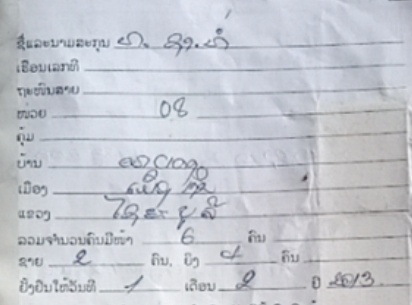 ຊື່ແລະນາມສະກຸນ
ເຮືອນເລກທີ
ຖະໜົນສາຍ
ໜ່ວຍ 08
ຄຸ້ມ
ບ້ານ
ເມືອງ
ແຂວງ ໄຊຍະບູລີ
ລວມຈຳນວນຄົນມີໜ້າ 6 ຄົນ
ຊາຍ 2 ຄົນ, ຍິງ 4 ຄົນ
ຍັ້ງຢືນໃຫ້ວັນທີ 1 ເດືອນ 2 ປີ 2013